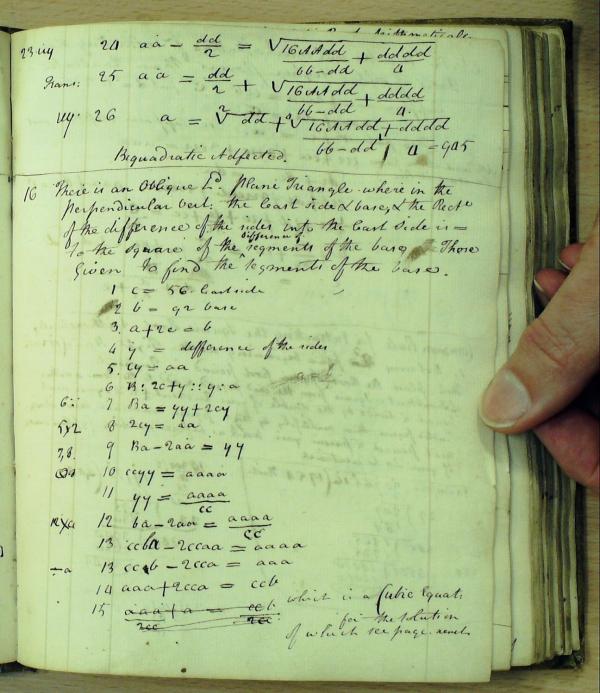 24 aa - dd/2 = √ 16AAdd/bb-dd + dddd/4
Trans: 25 aa = dd/2 + √ 16AAdd/bb-dd + dddd/4.
26 a = √ dd + √ 16AAdd + dddd
bb - dd 4 = 945
Biquadratic Adfected.
16 There is an Oblique Ld. plane Triangle where in the
Perpendicular bet: the least side & base, & the Rect
of the difference of the sides into the least side is =
difference of
to the square of the segments of the base Those
Given To find the segments of the base.
1 c = 56 least side
2 b = 92 base
3 a + 2e = b
4 y = difference of the sides
5. cy = aa
6 B : 2c+y :: y : a
6 :: 7 Ba = yy + 2cy
5x2 8 2cy = 2aa
7,8 9 Ba - 2aa = yy
10 ccyy = aaaa
11 yy = aaaa/cc
12 ba - 2aa = aaaa/cc
13 ccba - 2ccaa = aaaa
÷a 13 ccb - 2cca = aaa
14 aaa + 2cca = ccb
15 aaa/2cc + a = ccb/2cc which is a Cubic Equat:
for the solution
of which see page